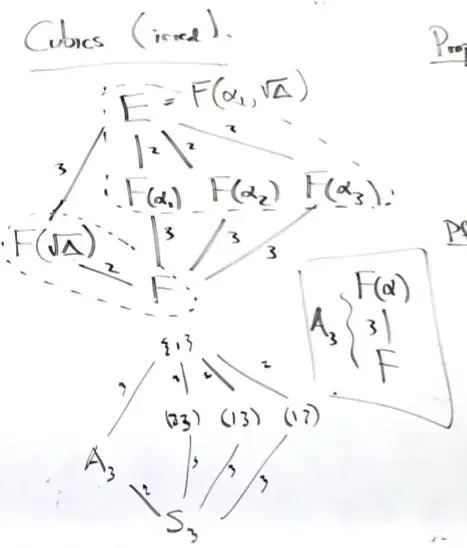 Cubics (irred).
Prop
E = F(α₁, √Δ)
3 2 2 2
F(α₁) F(α₂) F(α₃)
F(√Δ) 3 3 3
2
F
F(α)
A₃ { 3
F
{1}
2 2
(23) (13) (12)
A₃ 3 3
2
S₃